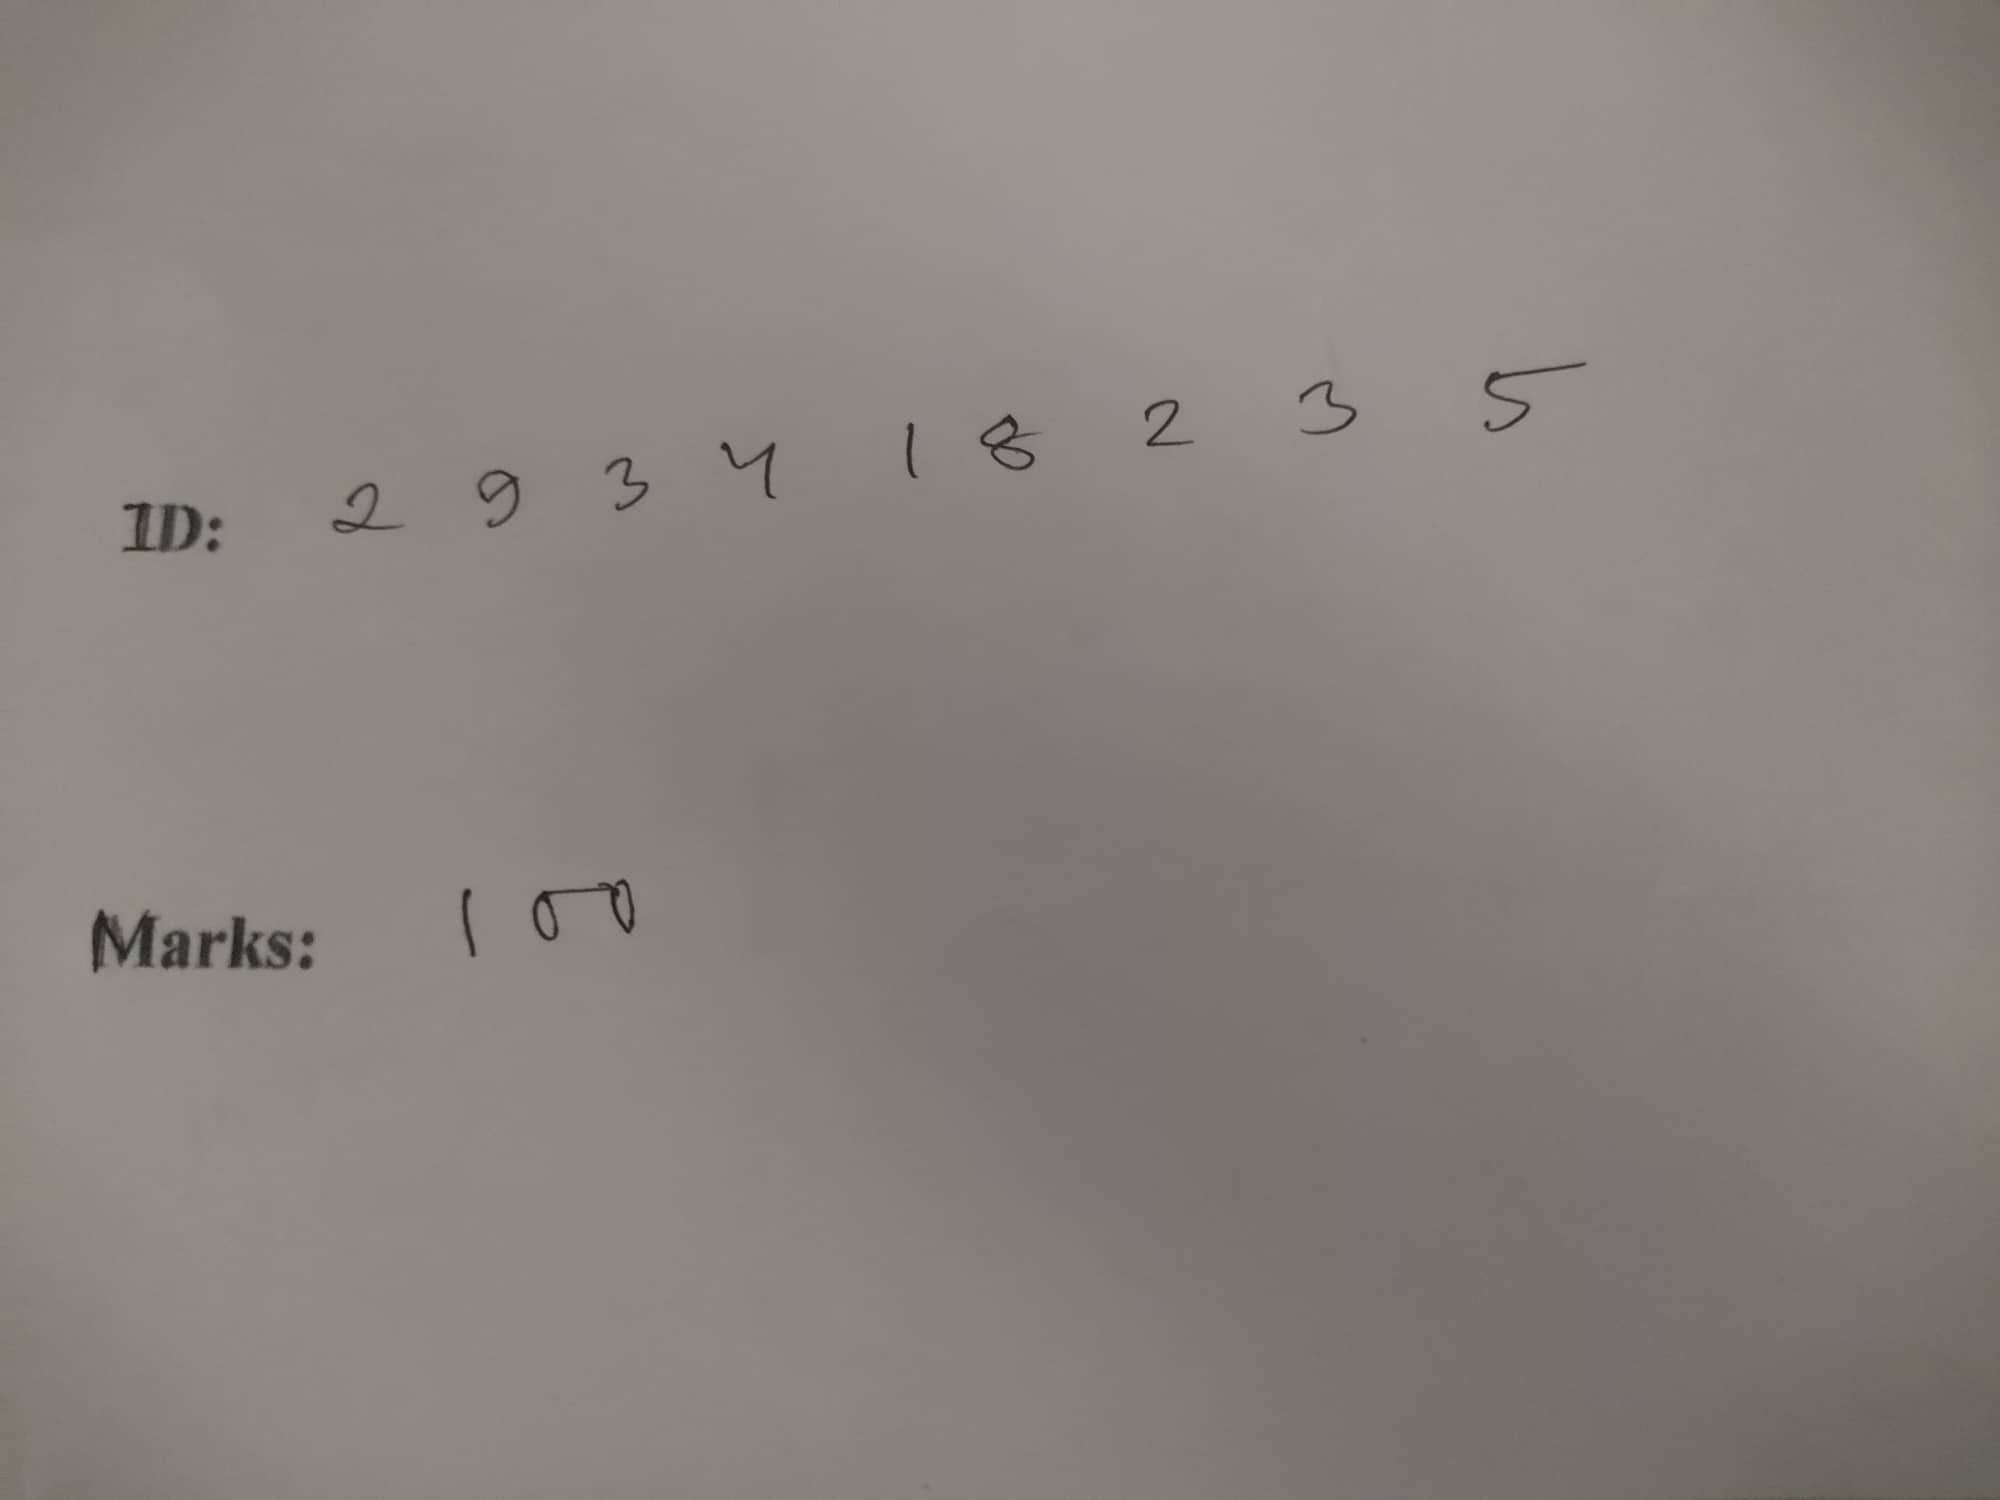 ID: 2 9 3 4 1 8 2 3 5
Marks: 100